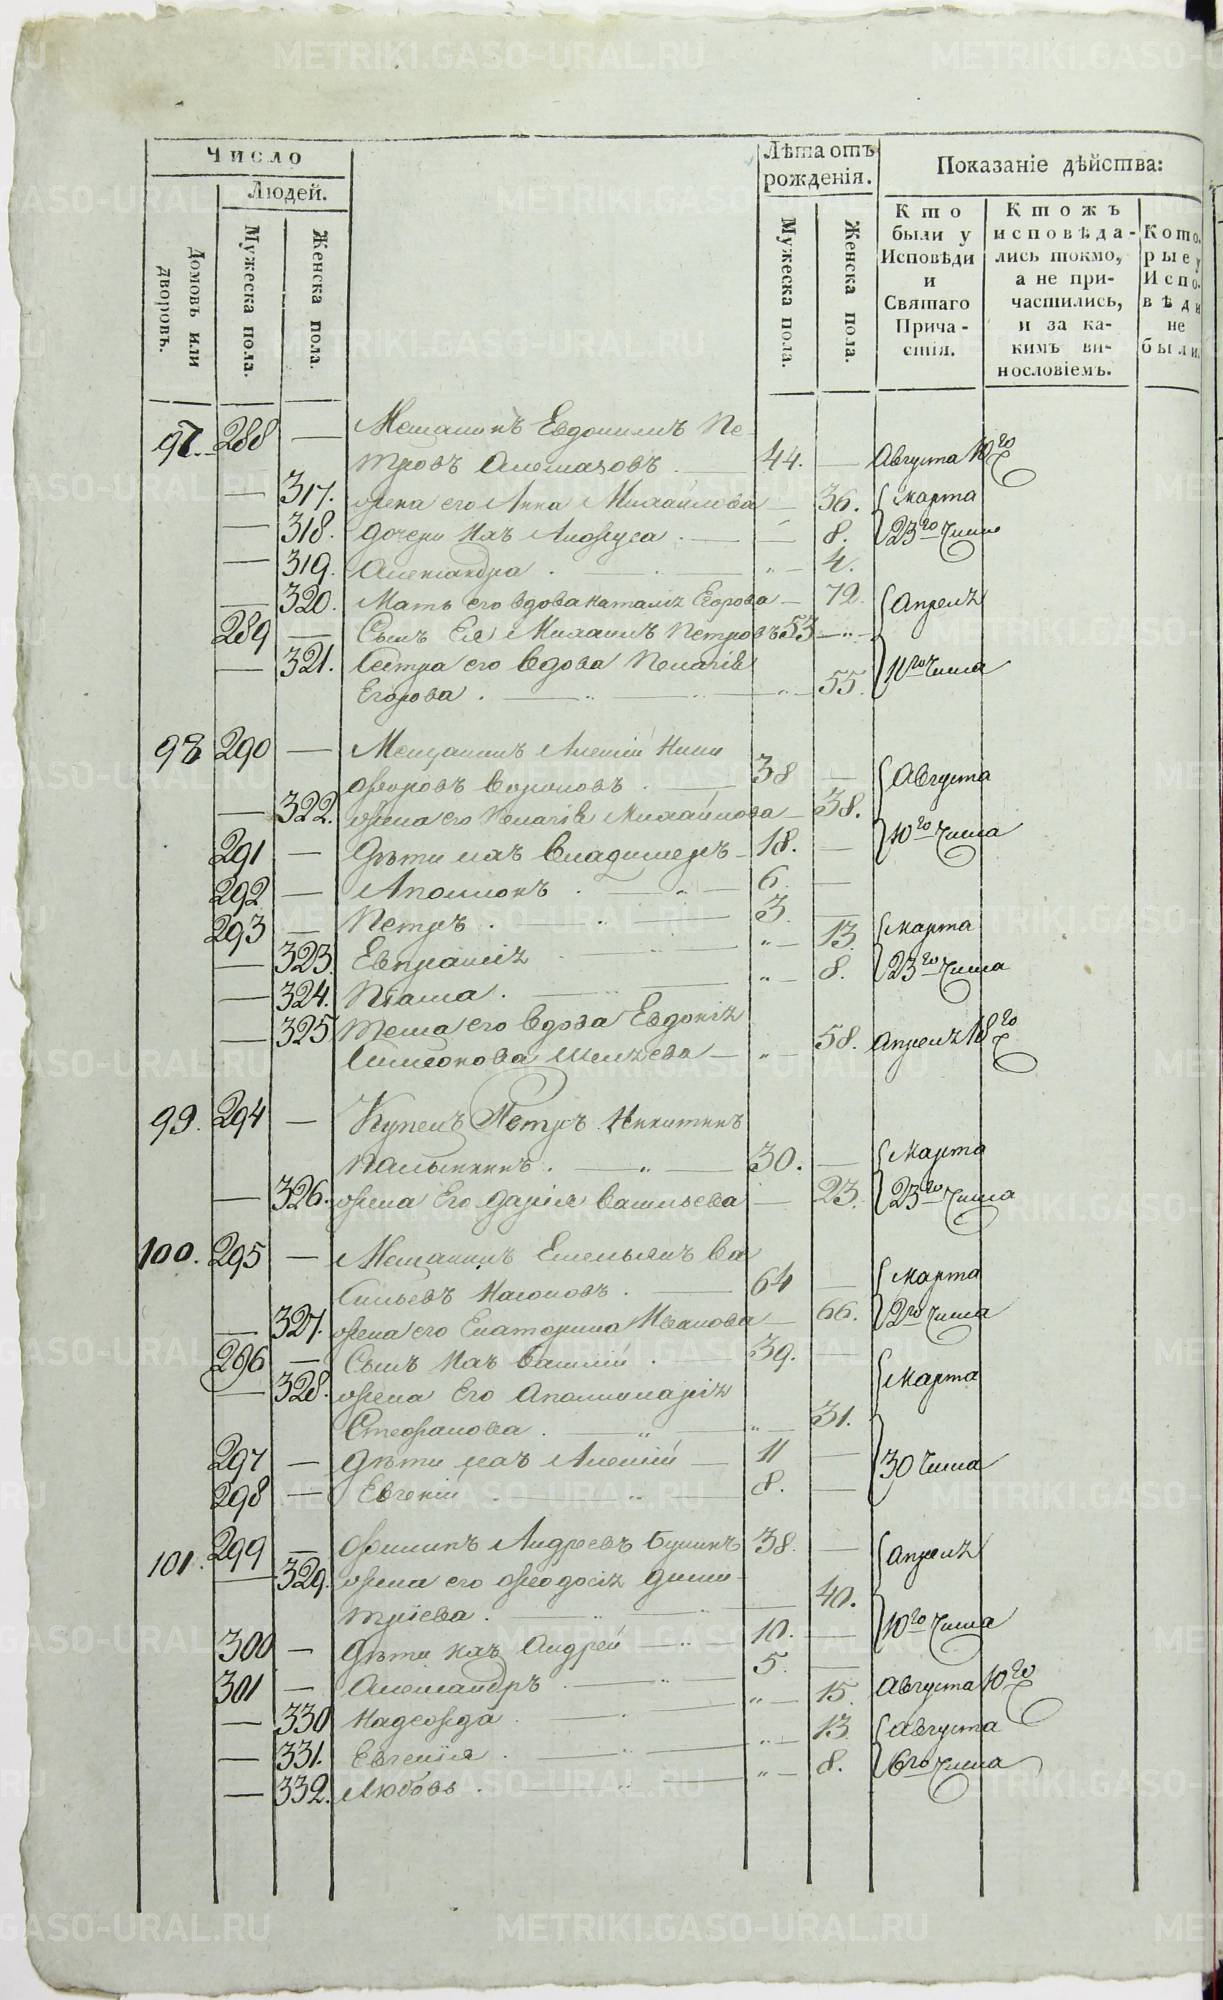 Число
Людей.
Домовъ или дворовъ.
Мужеска пола.
Женска пола.
Лѣта отъ рожденія.
Мужеска пола.
Женска пола.
Показаніе дѣйства:
Кто были у Исповѣди и Святаго Причастія.
Ктожъ исповѣдались токмо, а не причастились, и за какимъ винословіемъ.
Которые у Исповѣди не были.
97. 288 — Мещанинъ Евдокимъ Пе
тровъ 44. — Августа 10го
— 317. жена его Анна Михайлова — 36. Марта
— 318. дочери ихъ — 8. 23го Числа
— 319. Александра . — „ — 4.
— 320. Мать его вдова Наталія Егорова — 72. Апреля
289 — Сынъ Ея Михаилъ Петровъ 53 — „ —
— 321. Сестра его вдова Пелагія 11го Числа
Егорова . — „ — „ — 55.
98 290 — Мещанинъ Алексій Ники
форовъ Вороновъ . — 38 — Августа
— 322. жена его Пелагія Михайлова — 38.
291 — Дѣти ихъ Владимеръ — 18. — 10го Числа
292 — Аполлонъ . — „ — 6. —
293 — Петръ . — „ — 3. —
— 323. Евпраксія . — „ — 13. Марта
— 324. Паша . — „ — 8. 23го Числа
— 325 Теща его вдова Евдокія
Симеонова — „ — 58. Апреля 18го
99. 294 — Купецъ Петръ Никитинъ
Калынинъ . — „ — 30. — Марта
— 326. жена Его Дарія Васильева — 23. 23го Числа
100. 295 — Мещанинъ Емельянъ Ва
сильевъ . — 64 — Марта
— 327. жена его Екатерина Иванова — 66. 2го Числа
296 — Сынъ ихъ Василій . — 39. —
— 328. жена Его Аполлинарія Марта
Стефанова . — „ — „ 31.
297 — Дѣти ихъ Алексій — 11 — 30 Числа
298 — Евгеній . — „ — 8. —
101. 299 — Филипъ Андреевъ 38. — Апреля
— 329. жена его Феодосія Дими
тріева . — „ — „ — 40.
300 — Дѣти ихъ Андрей — „ — 10. — 10го Числа
301 — Александръ . — „ — 5. —
— 330 Надежда . — „ — 15. Августа 10го
— 331. Евгенія . — „ — 13 Августа
— 332. Любовь . — „ — 8. 6го Числа
METRIKI.GASO-URAL.RU